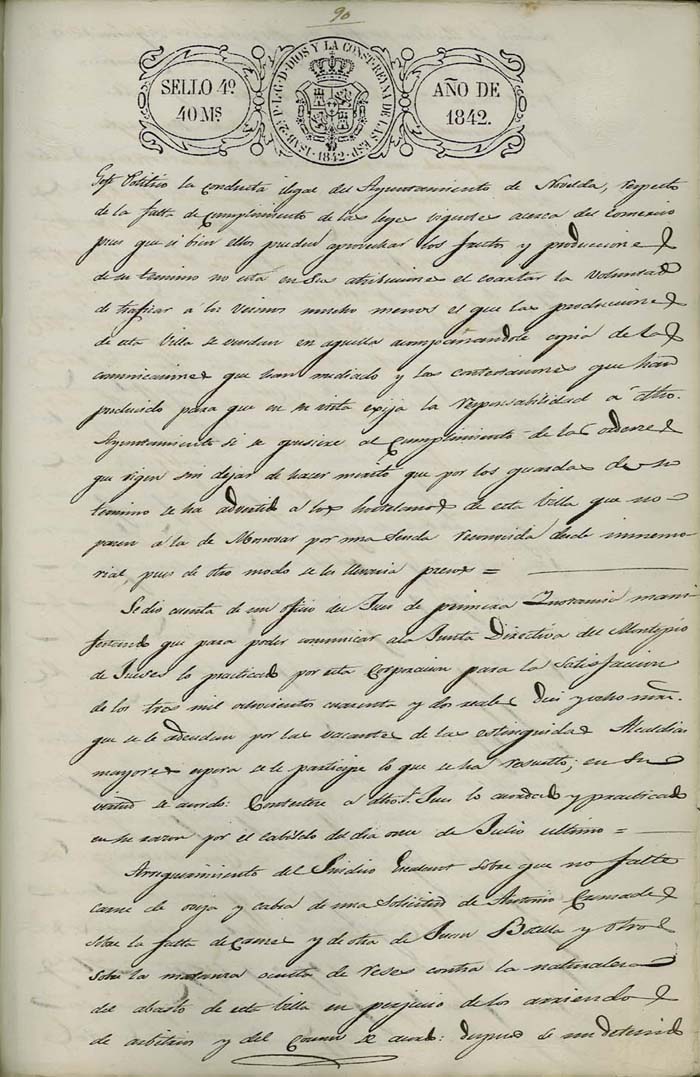 90
SELLO 4º
40 Mˢ
ISAB. 2ª P.L.G.D. DIOS Y LA CONST. REYNA DE LAS ESP. 1842
AÑO DE
1842.
Politico la conducta ilegal del Ayuntamiento de Novelda, respecto
de la falta de cumplimiento de las leyes vigentes acerca del comercio
pues que si bien ellos pueden aprovechar los frutos y producciones
de su termino no está en sus atribuciones el coartar la voluntad
de traficar á los vecinos mucho menos el que las producciones
de esta Villa se vendan en aquella acompañandole copia de las
comunicaciones que han mediado y las contestaciones que han
producido para que en su vista exija la responsabilidad á dho.
Ayuntamiento si se opusiere al cumplimiento de las ordenes
que rigen sin dejar de hacer merito que por los guardas de su
termino se ha advertido á los hortelanos de esta Villa que no
pasen á la de Monovar por una Senda reconocida desde inmemo
rial, pues de otro modo se los llevaria presos =
Se dio cuenta de un oficio del Juez de primera Instancia mani
festando que para poder comunicar a la Junta Directiva del Montepio
de Jueses lo practicado por esta Corporacion para la Satisfaccion
de los tres mil ochocientos cuarenta y dos reales diez y ocho mrs.
que se le adeudan por las vacantes de las estinguidas Alcaldias
mayores espera se le participe lo que se ha resuelto; en su
virtud se acordo: Contestar a dho. Sr. Juez lo acordado y practicado
en su razon por el cabildo del dia once de Julio ultimo =
sobre que no falte
carne de oveja y cabra de una Solicitud de Antonio
sobre la falta de carnes y de otra de Juan Botella y otros
sobre la matanza oculta de reses contra la naturaleza
del abasto de esta Villa en perjuicio de los arriendos
de arbitrios y del Comun se acordo: despues de un detenido